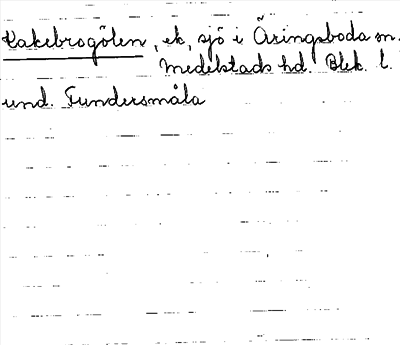 Kakebrogölen, ek, sjö i Äringsboda sn.
Medelstads hd. Blek. l.
und. Fundersmåla